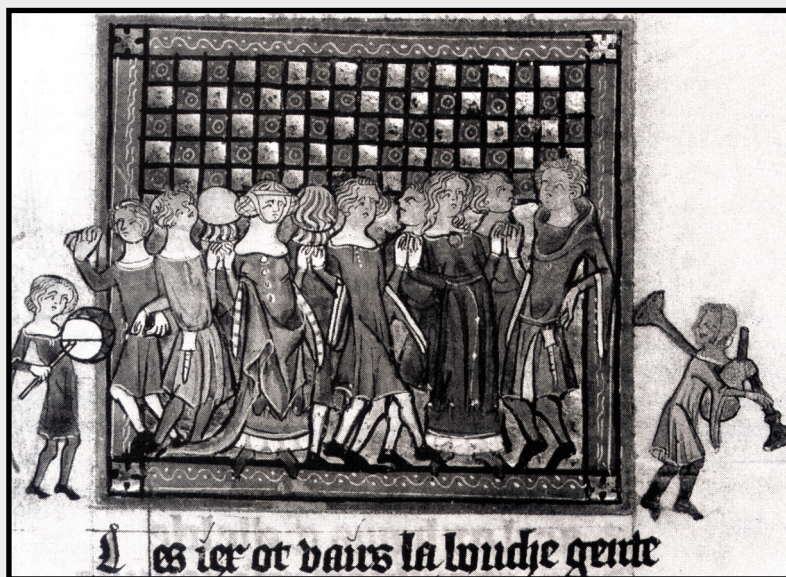 Les iex ot vairs la bouche gente